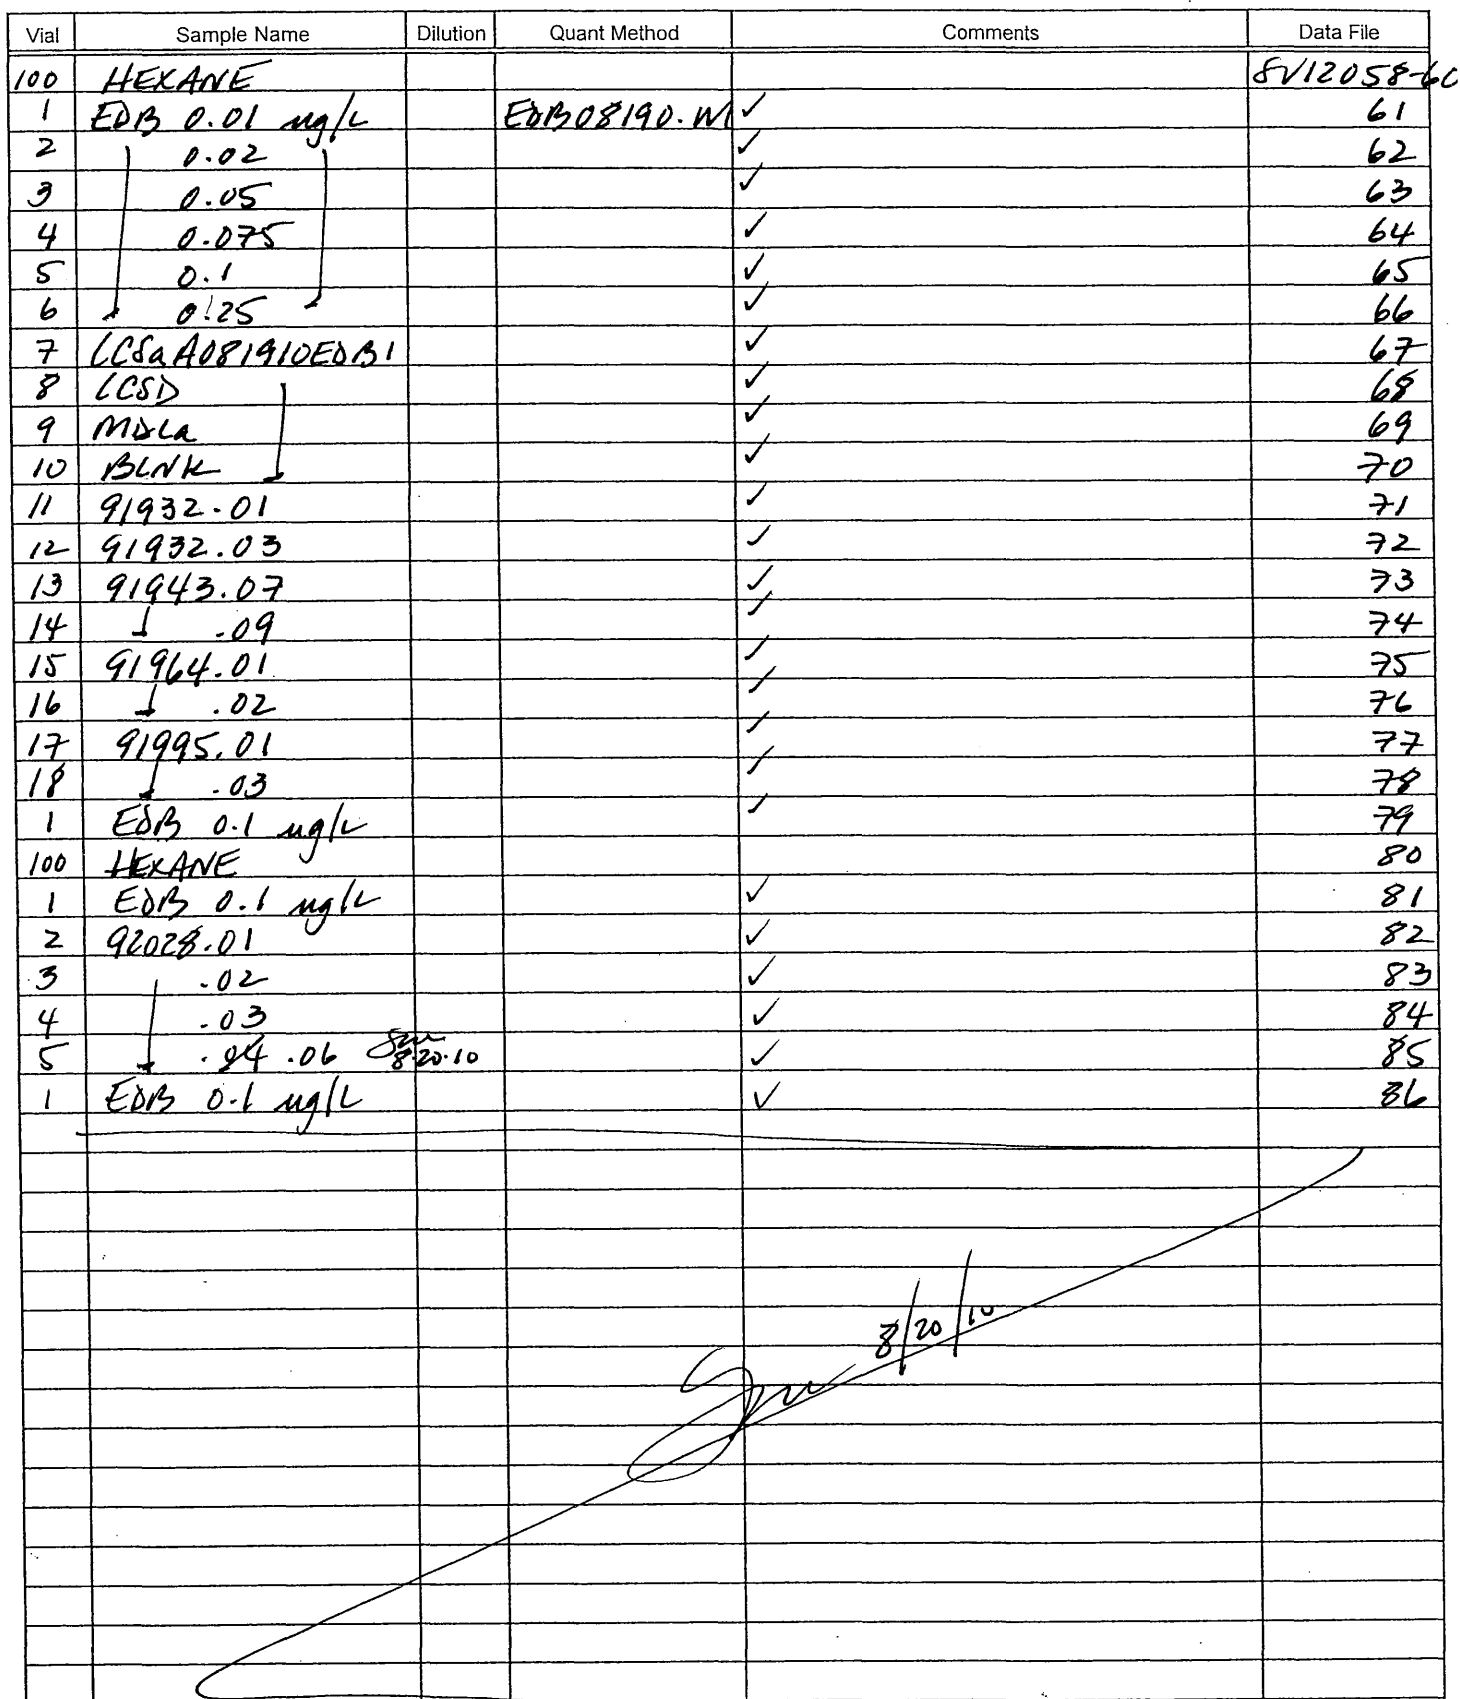 Vial Sample Name Dilution Quant Method Comments Data File
100 HEXANE 8V12058-60
1 EDB 0.01 ug/L EDB08190.M ✓ 61
2 0.02 ✓ 62
3 0.05 ✓ 63
4 0.075 ✓ 64
5 0.1 ✓ 65
6 0.25 ✓ 66
7 LCSaA081910EDB1 ✓ 67
8 LCSD ✓ 68
9 MDLa ✓ 69
10 BLNK ✓ 70
11 91932.01 ✓ 71
12 91932.03 ✓ 72
13 91943.07 ✓ 73
14 ↓ .09 ✓ 74
15 91964.01 ✓ 75
16 ↓ .02 ✓ 76
17 91995.01 ✓ 77
18 ↓ .03 ✓ 78
1 EDB 0.1 ug/L ✓ 79
100 HEXANE 80
1 EDB 0.1 ug/L ✓ 81
2 92028.01 ✓ 82
3 .02 ✓ 83
4 .03 ✓ 84
5 .04 .06 8.20.10 ✓ 85
1 EDB 0.1 ug/L ✓ 86
8/20/10